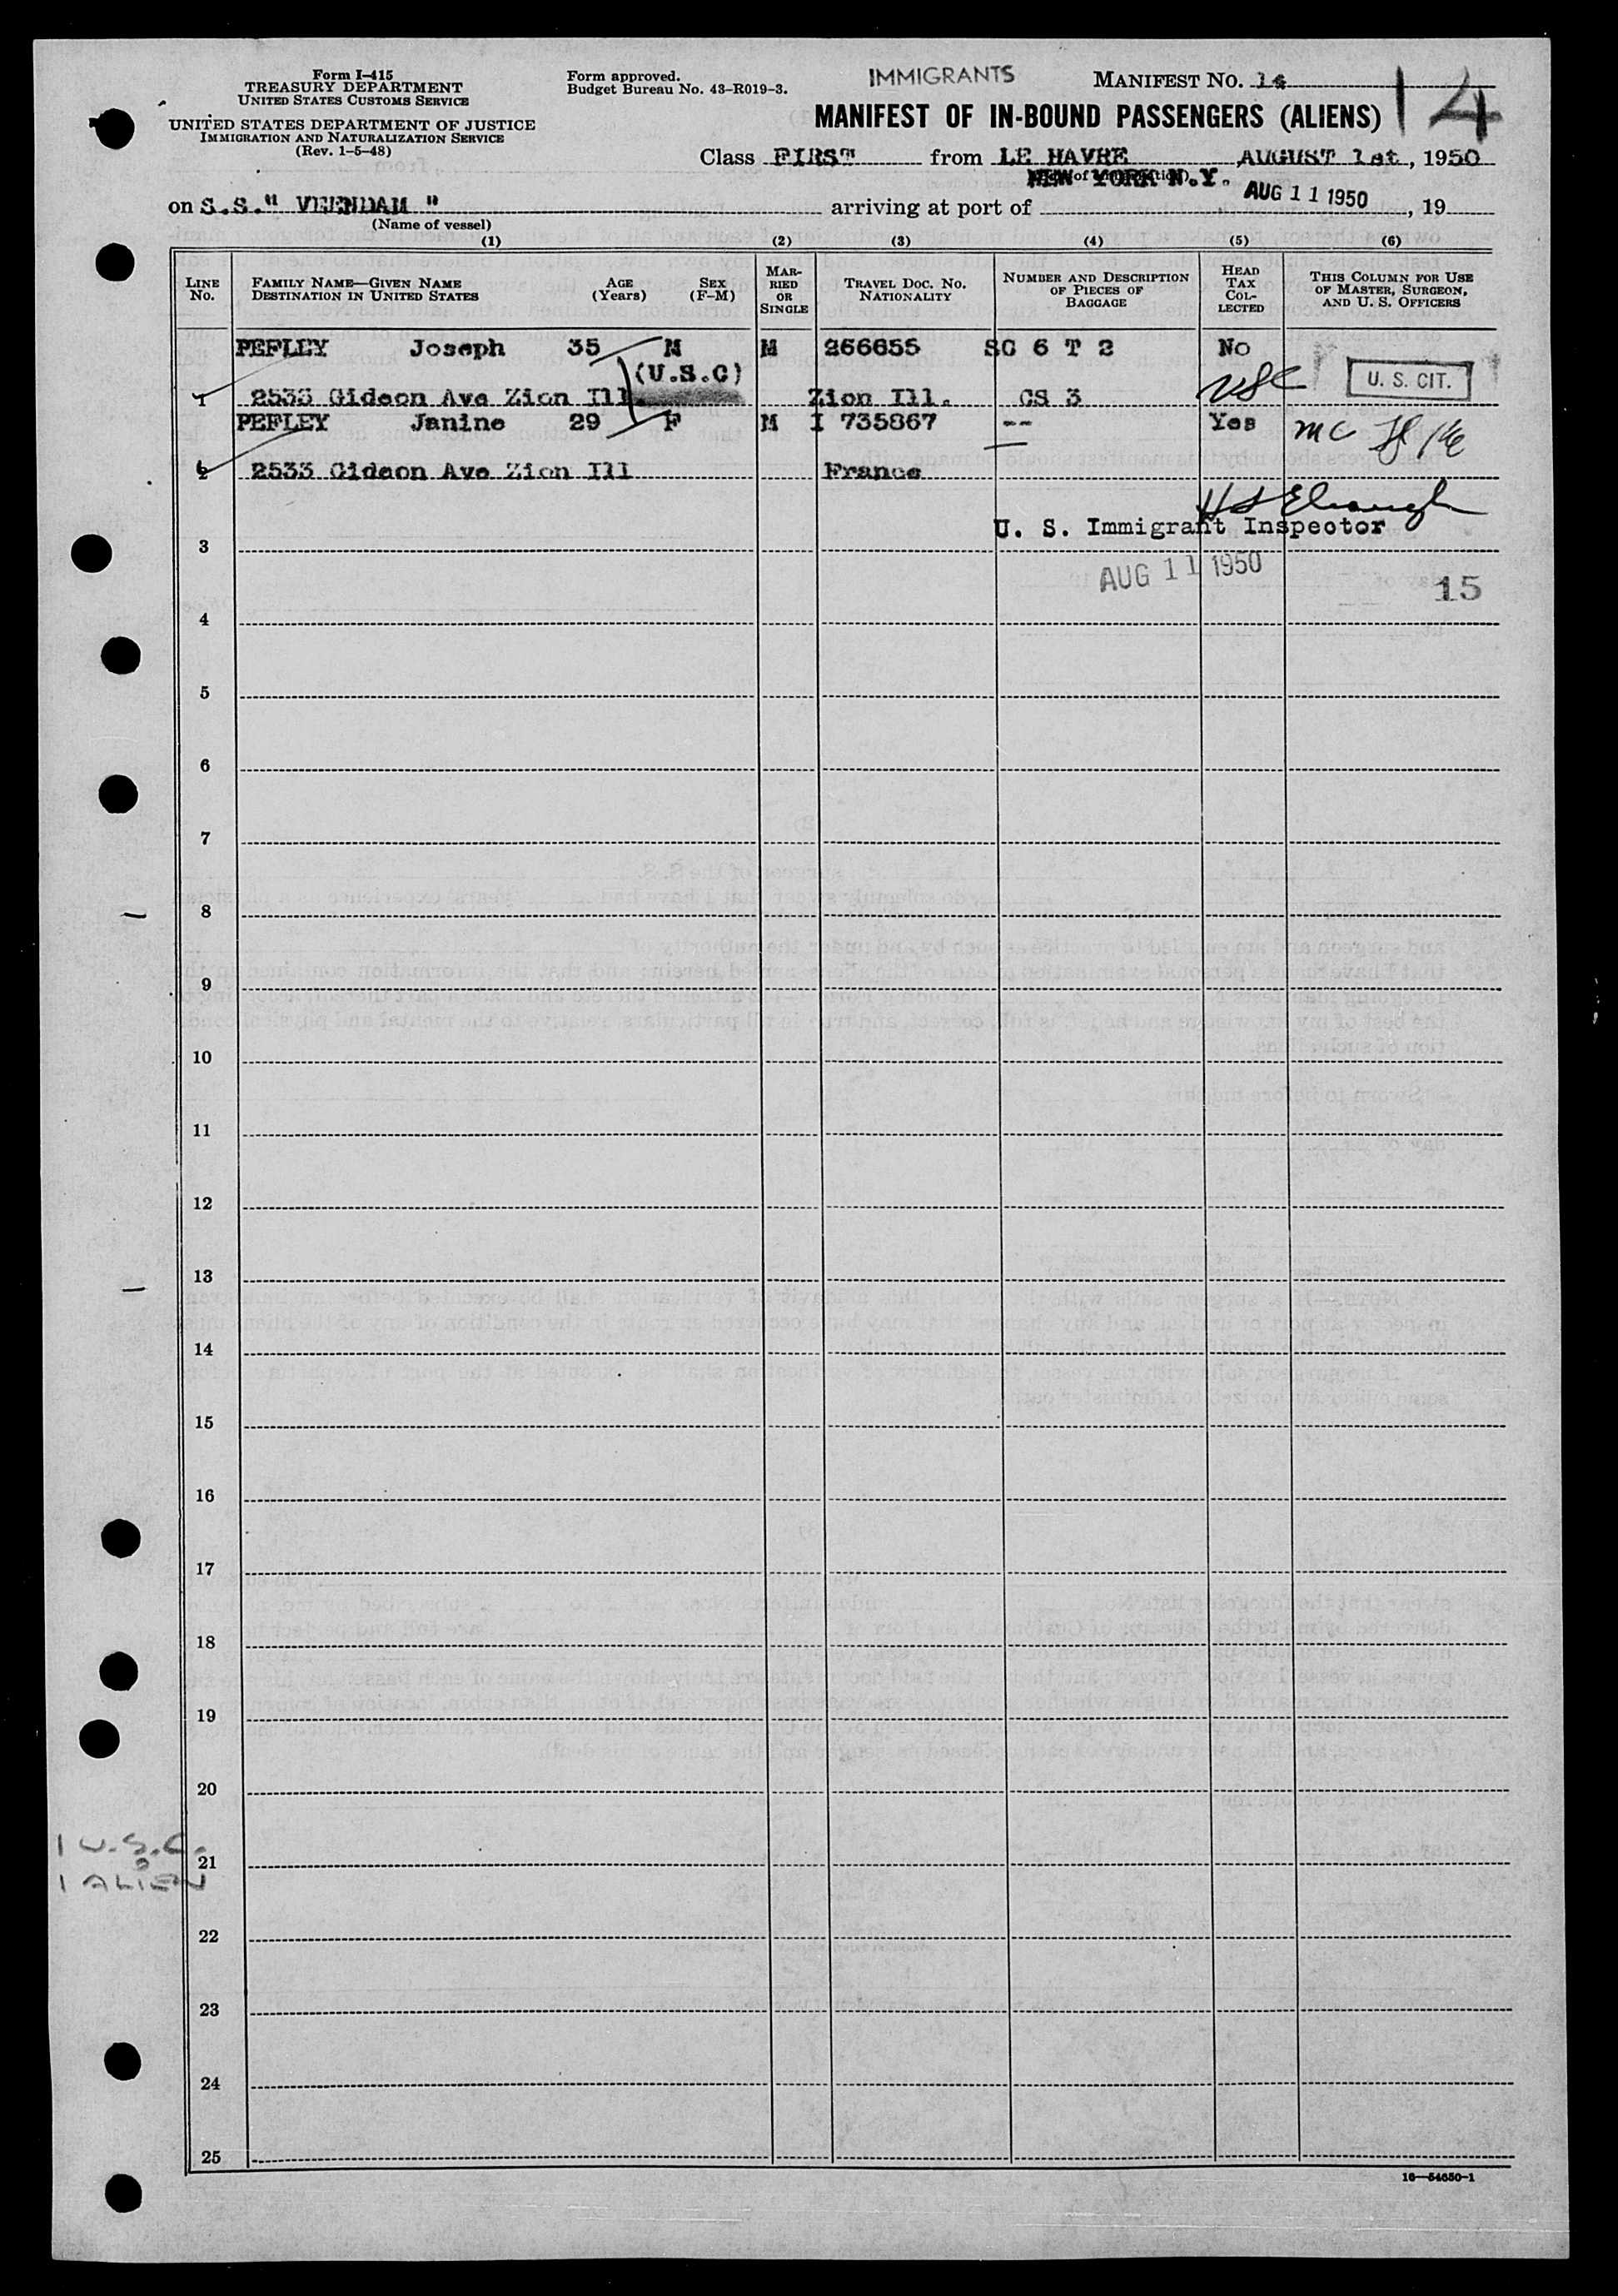 Form I-415
TREASURY DEPARTMENT
UNITED STATES CUSTOMS SERVICE
UNITED STATES DEPARTMENT OF JUSTICE
IMMIGRATION AND NATURALIZATION SERVICE
(Rev. 1-5-48)
Form approved.
Budget Bureau No. 43-R019-3.
IMMIGRANTS
MANIFEST NO. 14
14
MANIFEST OF IN-BOUND PASSENGERS (ALIENS)
Class FIRST from LE HAVRE AUGUST 1st, 1950
on S.S." VEENDAM " arriving at port of NEW YORK N.Y. AUG 11 1950, 19
(Name of vessel)
(1) (2) (3) (4) (5) (6)
LINE No.
FAMILY NAME—GIVEN NAME
DESTINATION IN UNITED STATES
AGE (Years)
SEX (F-M)
MARRIED OR SINGLE
TRAVEL DOC. NO.
NATIONALITY
NUMBER AND DESCRIPTION OF PIECES OF BAGGAGE
HEAD TAX COLLECTED
THIS COLUMN FOR USE OF MASTER, SURGEON, AND U. S. OFFICERS
PEFLEY Joseph 35 M M 266655 SC 6 T 2 No
(U.S.C)
1 2533 Gideon Ave Zion Ill. Zion Ill. CS 3 USC U. S. CIT.
PEFLEY Janine 29 F M I 735867 -- Yes MC
2 2533 Gideon Ave Zion Ill France
U. S. Immigrant Inspector
3
AUG 11 1950
15
4
5
6
7
8
9
10
11
12
13
14
15
16
17
18
19
20
1 U.S.C.
21
1 ALIEN
22
23
24
25
16—54650-1